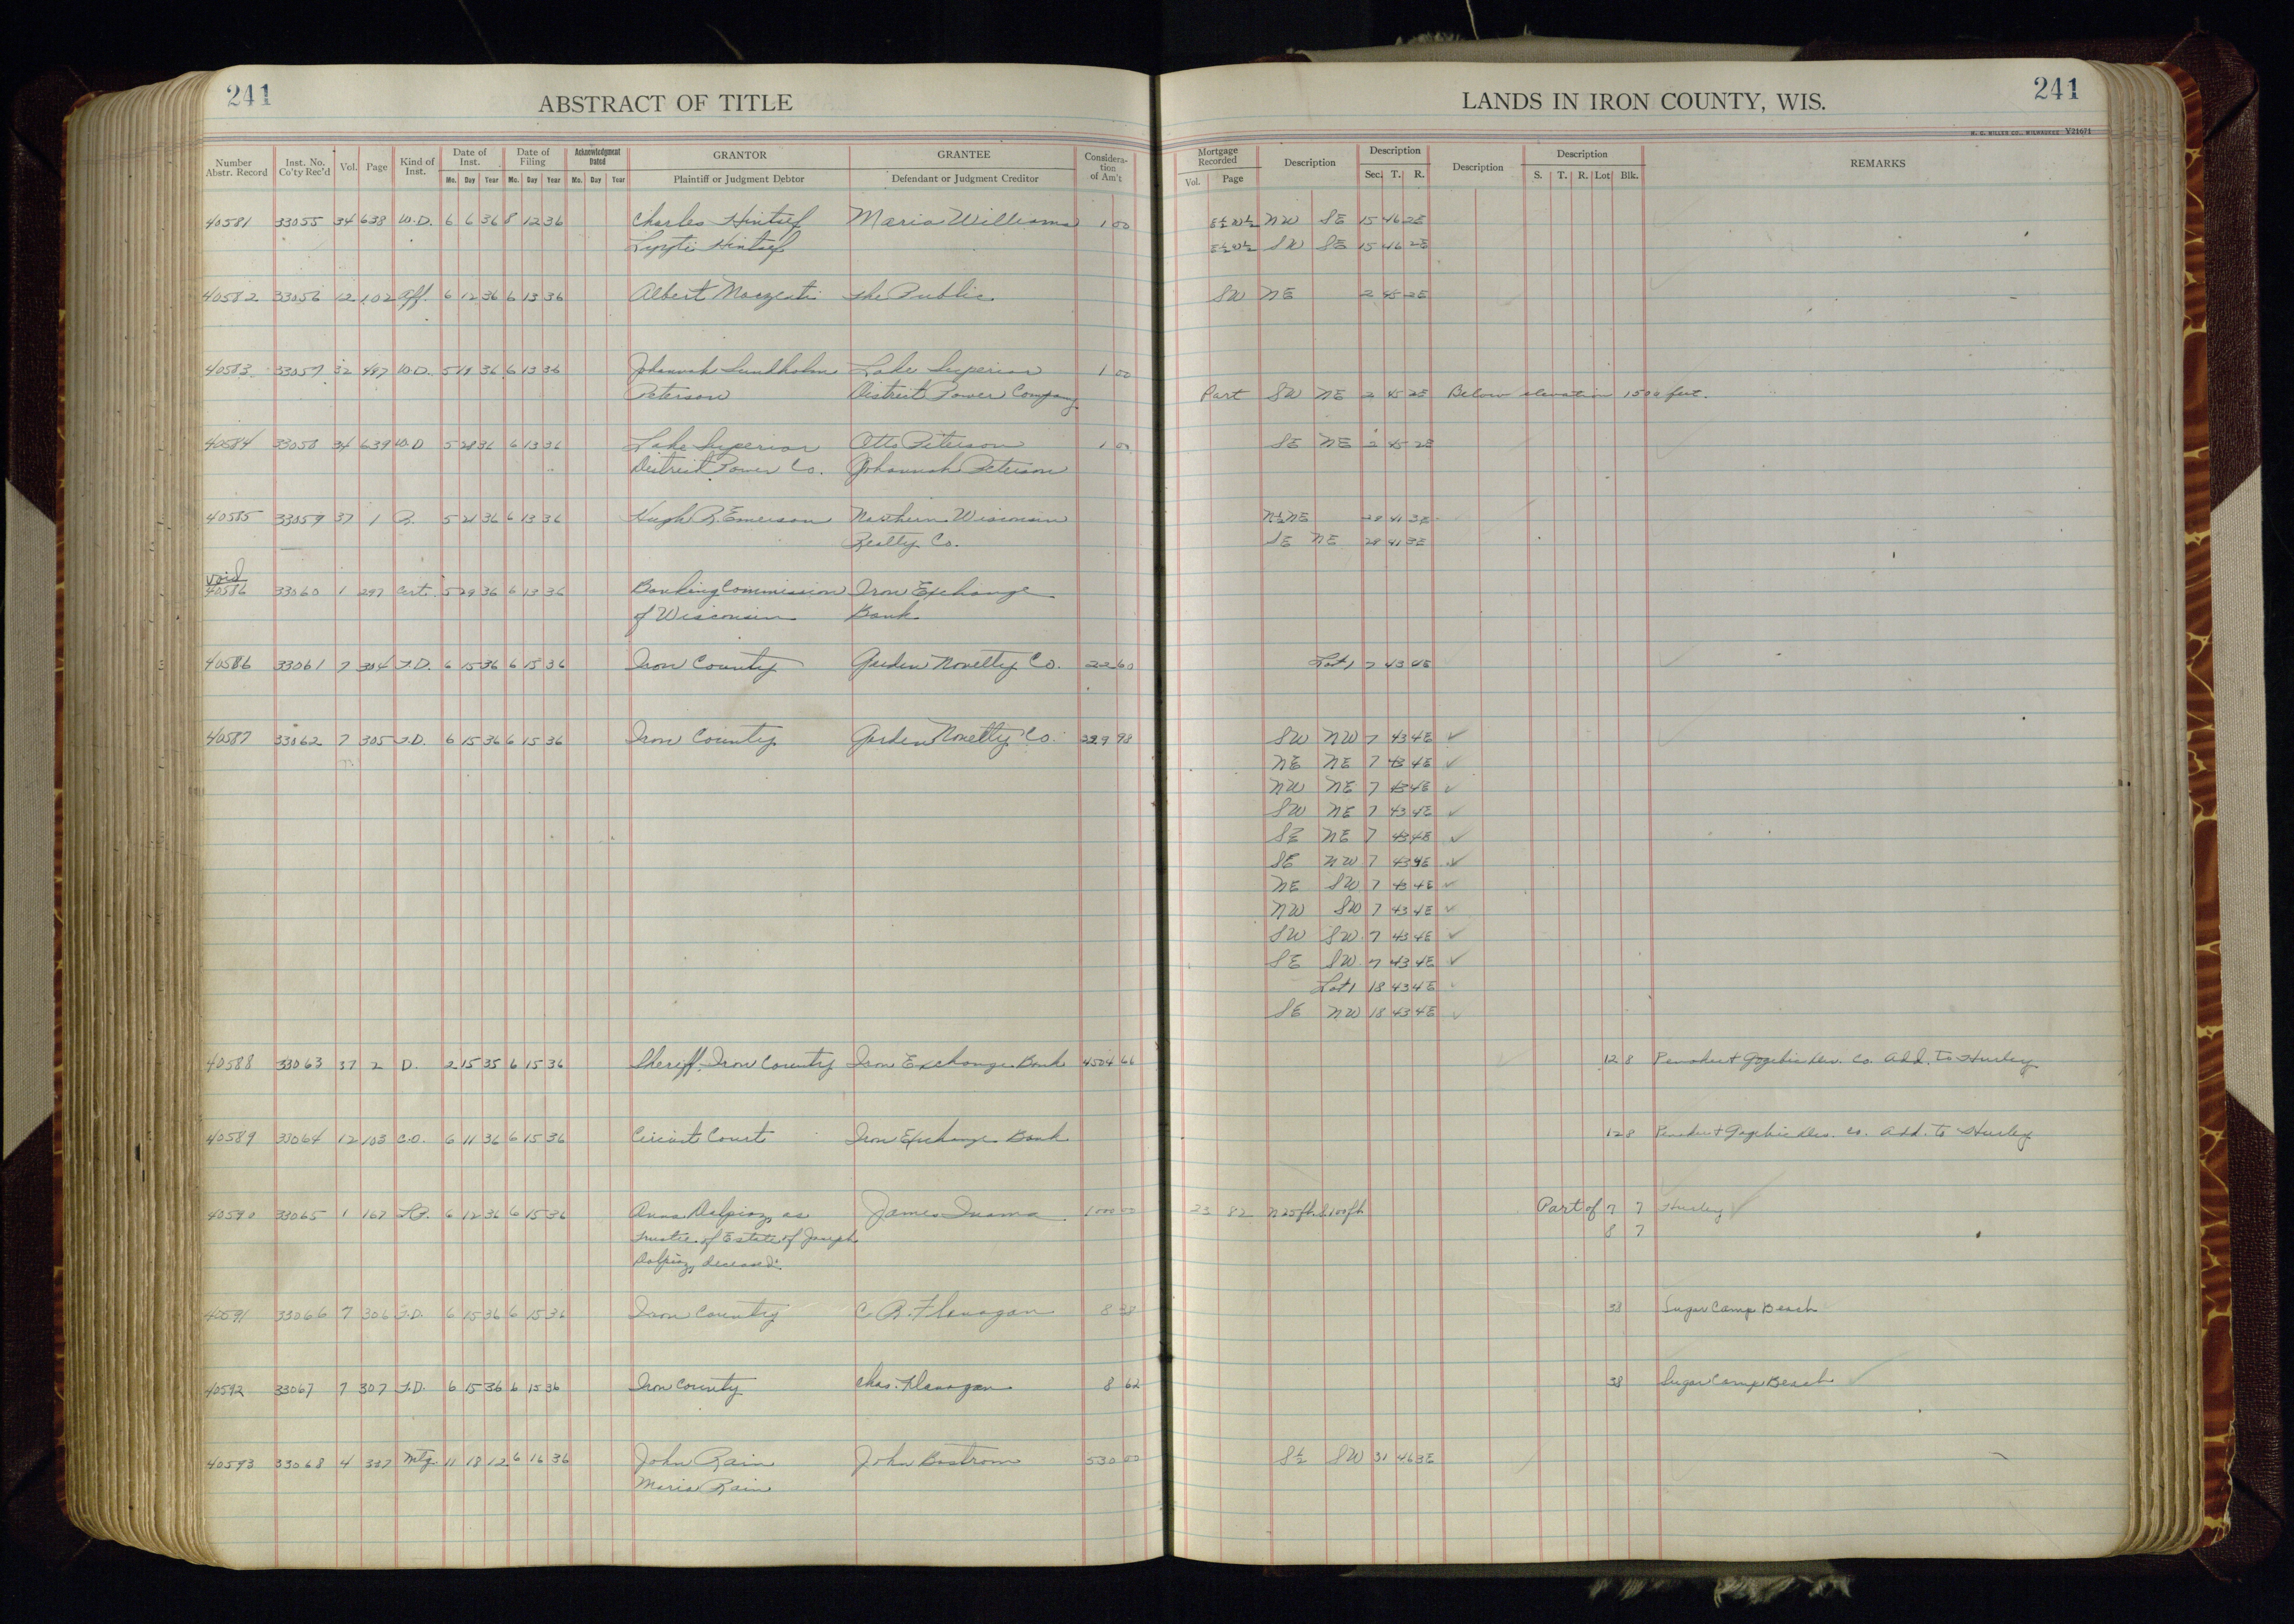 241
ABSTRACT OF TITLE
LANDS IN IRON COUNTY, WIS.
241
H. C. MILLER CO., MILWAUKEE V21671
Number Abstr. Record Inst. No. Co'ty Rec'd Vol. Page Kind of Inst. Date of Inst. Mo. Day Year Date of Filing Mo. Day Year Acknowledgment Dated Mo. Day Year GRANTOR Plaintiff or Judgment Debtor GRANTEE Defendant or Judgment Creditor Considera-tion of Am't Mortgage Recorded Vol. Page Description Description Sec. T. R. Description Description S. T. R. Lot Blk. REMARKS
40581 33055 34 638 W.D. 6 6 36 8 12 36 Charles Maria Williams 1 00 E½W½ NW SE 15 46 2E
E½W½ SW SE 15 46 2E
40582 33056 12 102 Aff. 6 12 36 6 13 36 Albert The Public SW NE 2 45 2E
40583 33057 32 497 W.D. 5 19 36 6 13 36 Johannah Lundholm Lake Superior 1 00
Peterson District Power Company Part SW NE 2 45 2E Below elevation 1500 feet.
40584 33058 34 639 W.D 5 28 36 6 13 36 Lake Superior Otto Peterson 1 00 SE NE 2 45 2E
District Power Co. Johannah Peterson
40585 33059 37 1 D. 5 21 36 6 13 36 Hugh R. Emerson Northern Wisconsin N½NE 28 41 3E
Realty Co. SE NE 28 41 3E
void
40586 33060 1 297 Cert. 5 29 36 6 13 36 Banking Commission Iron Exchange
of Wisconsin Bank
40586 33061 7 304 T.D. 6 15 36 6 15 36 Iron County Garden Novelty Co. 22 60 Lot 1 7 43 4E
40587 33062 7 305 T.D. 6 15 36 6 15 36 Iron County Garden Novelty Co. 229 98 SW NW 7 43 4E ✓
NE NE 7 43 4E ✓
NW NE 7 43 4E ✓
SW NE 7 43 4E ✓
SE NE 7 43 4E ✓
SE NW 7 43 4E ✓
NE SW 7 43 4E ✓
NW SW 7 43 4E ✓
SW SW 7 43 4E ✓
SE SW 7 43 4E ✓
Lot 1 18 43 4E ✓
SE NW 18 43 4E ✓
40588 33063 37 2 D. 2 15 35 6 15 36 Sheriff, Iron County Iron Exchange Bank 4504 66 12 8 Penokee & Gogebic Dev. Co. Add. to Hurley
40589 33064 12 103 C.O. 6 11 36 6 15 36 Circuit Court Iron Exchange Bank 12 8 Penokee & Gogebic Dev. Co. Add. to Hurley
40590 33065 1 167 6 12 36 6 15 36 Anna Dalpiaz, as James Inama 1000 00 23 82 N 25 ft. S. 100 ft. Part of 7 7 Hurley
Trustee of Estate of Joseph 8 7
Dalpiaz, deceased.
40591 33066 7 306 T.D. 6 15 36 6 15 36 Iron County C. B. Flanagan 8 38 Sugar Camp Beach
40592 33067 7 307 T.D. 6 15 36 6 15 36 Iron County Chas. Flanagan 8 62 38 Sugar Camp Beach
40593 33068 4 337 Mtg. 11 18 12 6 16 36 John Rain John Bostrom 530 00 S½ SW 31 46 3E
Maria Rain